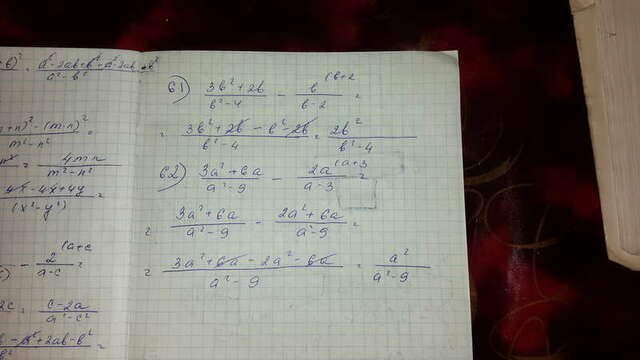 в)² = a²-2ab+b²+a²-2ab+b² / a²-b²
m+n)² - (m-n)² / m²-n² =
= 4mn / m²-n²
-4x+4y / (x²-y²) =
- 2 / a-c (a+c =
2c = c-2a / a²-c²
+2ab-b² =
61) 3b²+2b / b²-4 - b / b-2 (b+2 =
= 3b²+2b-b²-2b / b²-4 = 2b² / b²-4
62) 3a²+6a / a²-9 - 2a / a-3 (a+3 =
= 3a²+6a / a²-9 - 2a²+6a / a²-9 =
= 3a²+6a-2a²-6a / a²-9 = a² / a²-9